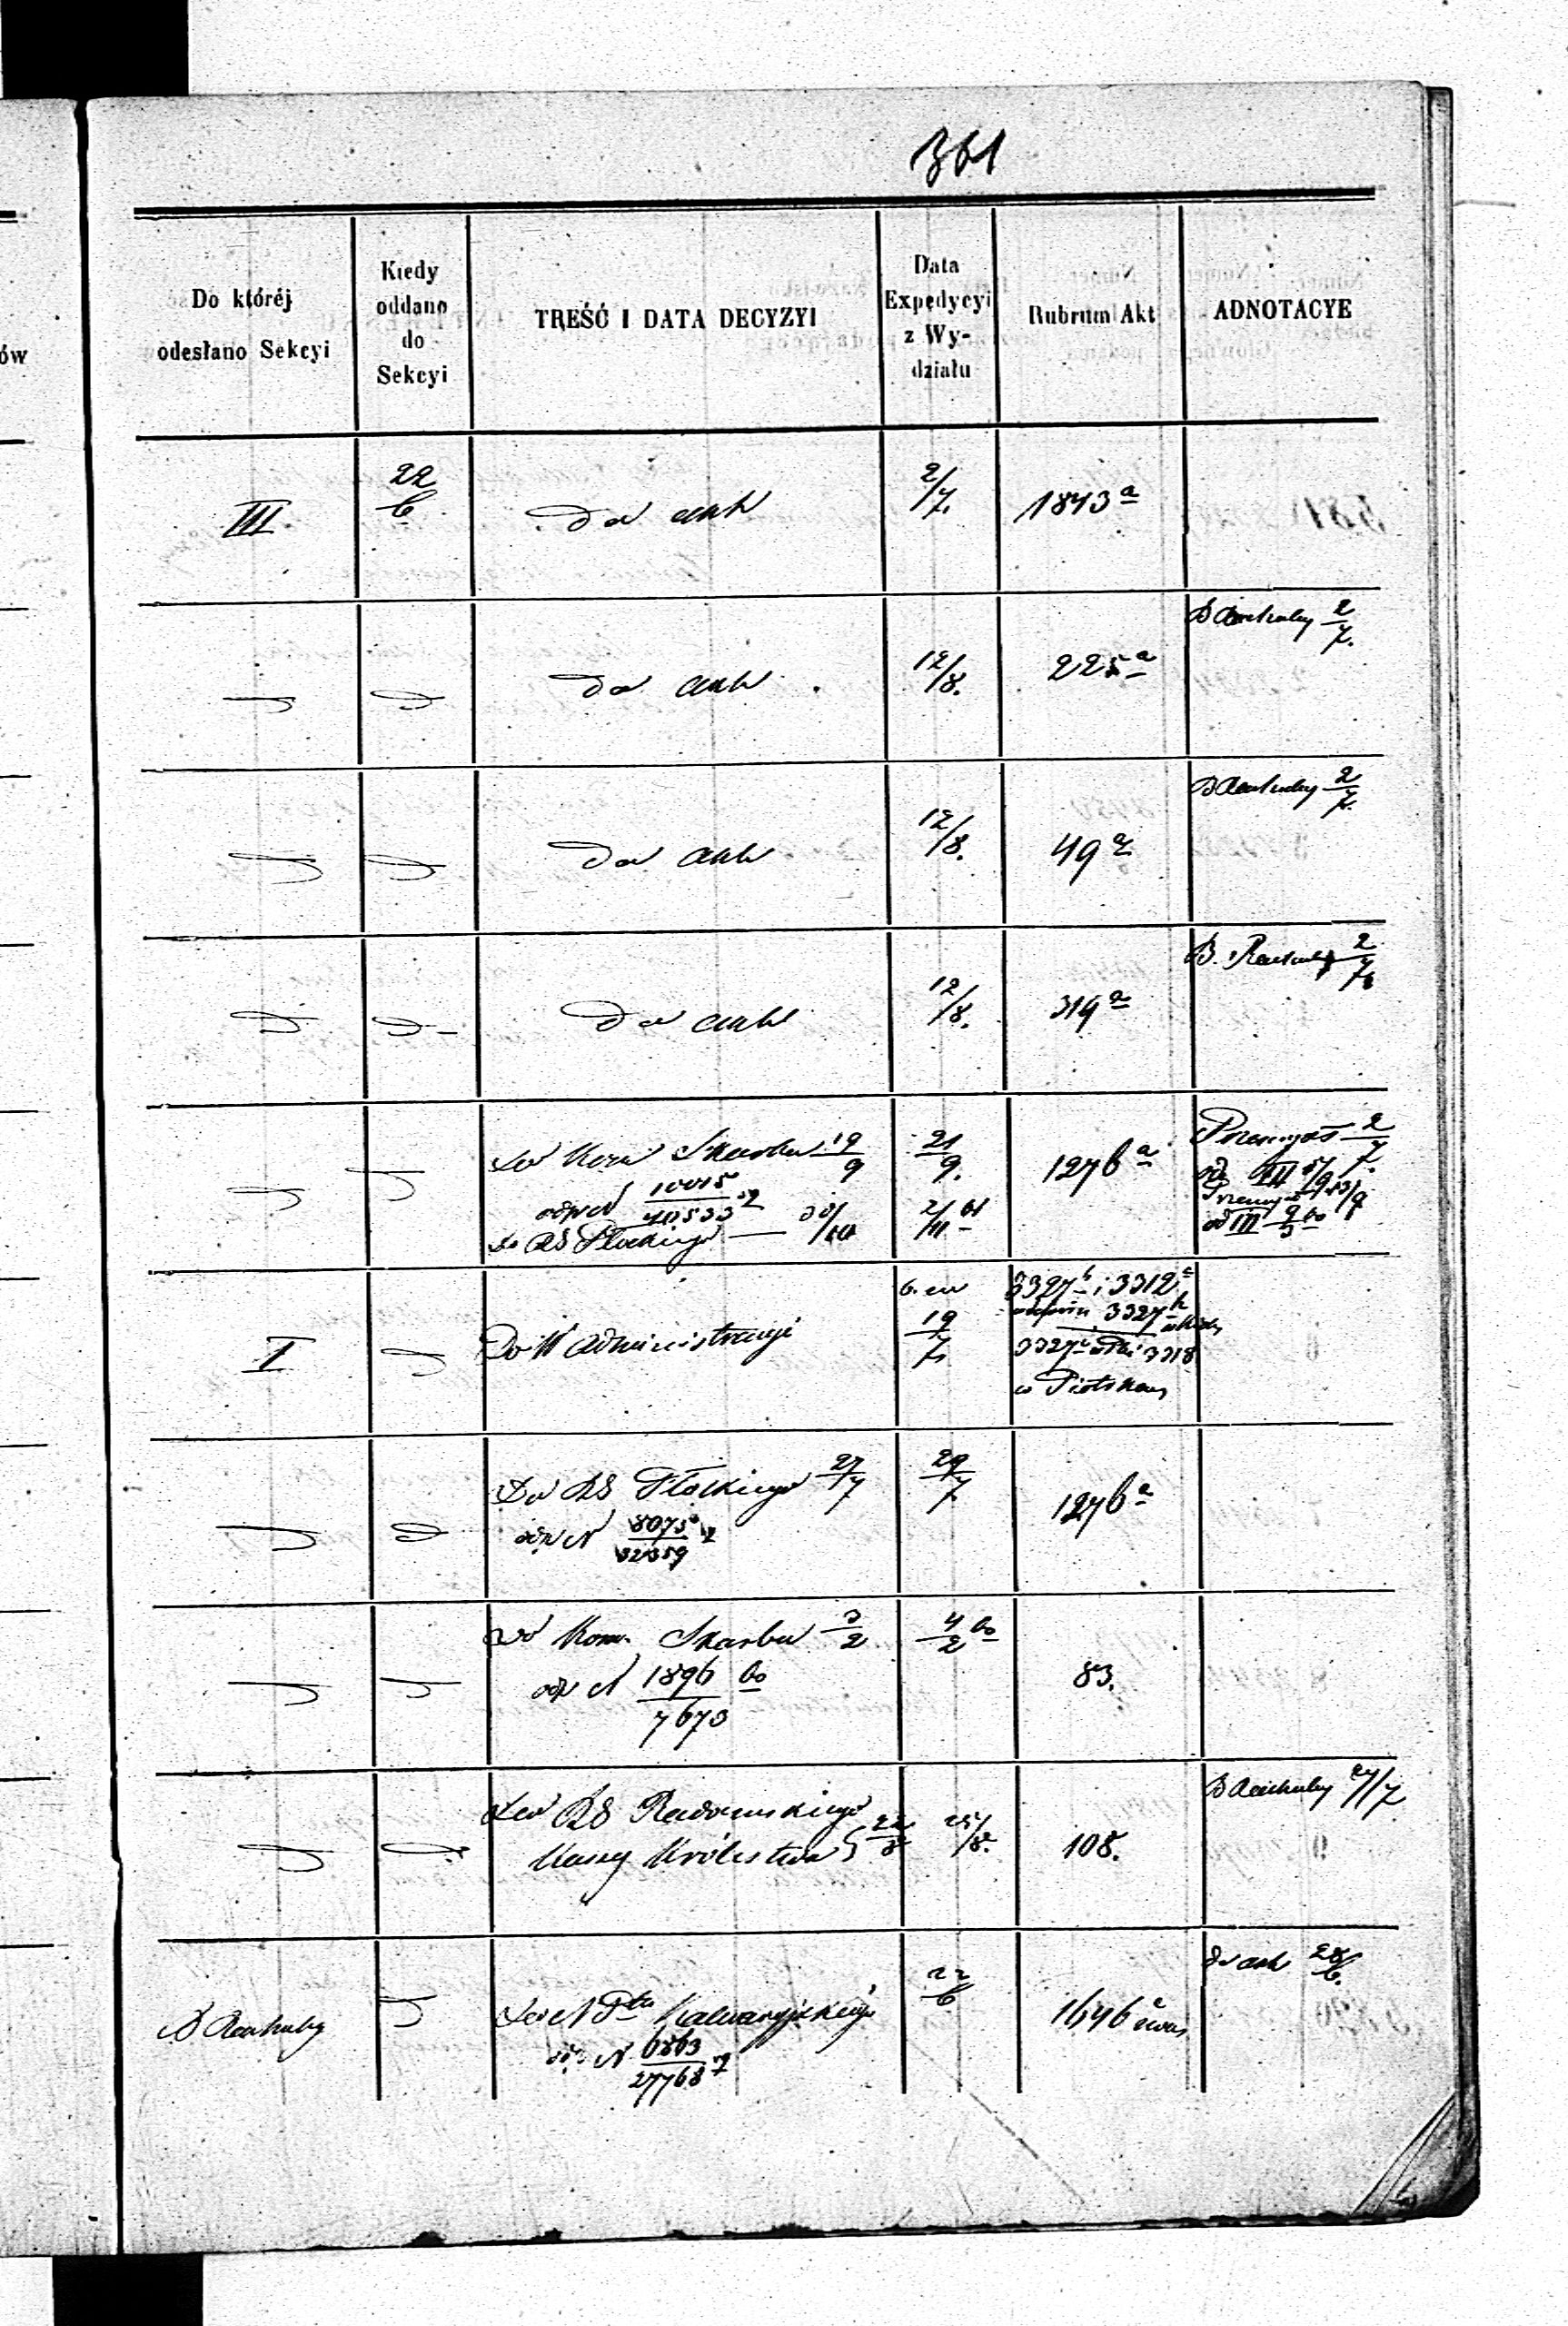 361
Do któréj
odesłano Sekcyi
Kiedy
oddano
do
Sekcyi
TREŚĆ I DATA DECYZYI
Data
Expedycyi
z Wy-
działu
Rubrum Akt
ADNOTACYE
III
22
6
do akt
2/7.
1843 a
do akt
12/8.
225 a
B Rachuby 2/7.
do akt
12/8.
49 a
B Rachuby 2/7.
do akt
12/8.
319 a
B. Rachuby 2/7
Do Kom Skarbu 19/9
odp N 10015/40533
Do RG Płockiego — 30/10
21/9.
2/11 61
1276 a
2/7.
III
od III
I
Do W Administracyi
19/7
3327 b i 3312
3327
w Piotrkow
Do RG Płockiego 27/7
odp N 8075/32359
29/7
1276 a
Do Kom. Skarbu 3/2
odp N 1896/7673 60
4/2 60
83.
Do RG Radomskiego
Kassy Królestwa 22/8
25/8.
108.
B Rachuby 27/7
B Rachuby
Do N Ptu Kalwaryjskiego
odp N 6863/27768
22/6
1646
do akt 28/6.